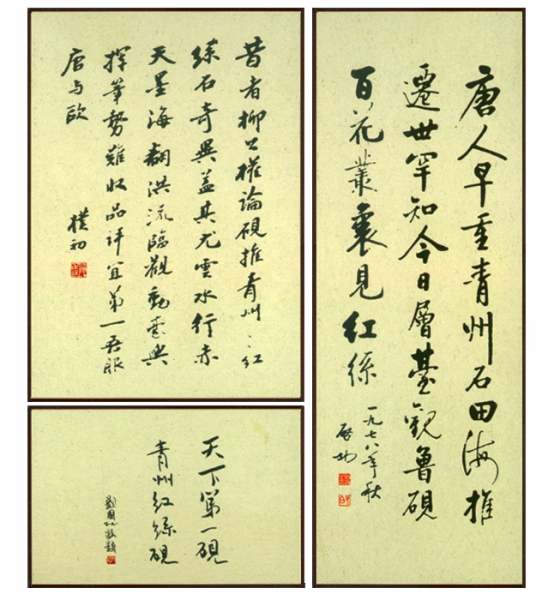 唐人早重青州石田海推
遷世罕知今日層臺觀魯硯
百花叢裏見紅絲
一九七八年秋
啟功
昔者柳公權論硯推青州〻紅
絲石奇異蓋其尤雲水行赤
天星海翻洪流臨觀動豪興
揮筆勢難收品評宜第一吾服
唐与歐
樸初
天下第一硯
青州紅絲硯